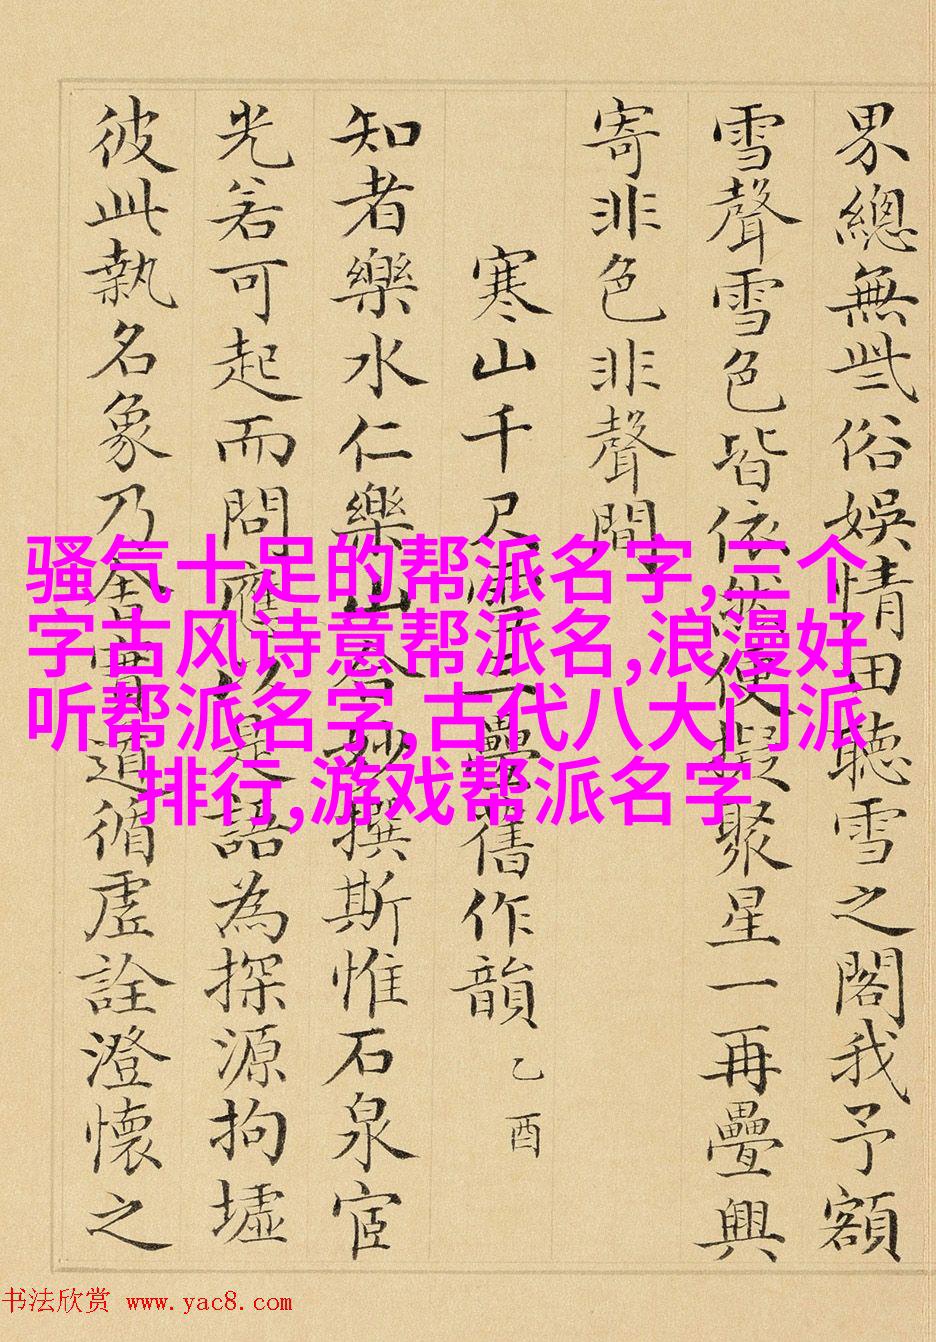 界總無些俗娛情田聽雪之閣我予額
雪聲雪色皆依然便擬聚星一再疊興
寄非色非聲間
寒山千尺雪三疊舊作韻 乙酉
知者樂水仁樂山合妙撰斯惟石泉宦
光若可起而問應以是語為探源拘墟
彼此執名象乃奮冥道循虛詮澄懷之
骚气十足的帮派名字,三个
字古风诗意帮派名,浪漫好
听帮派名字,古代八大门派
排行,游戏帮派名字
书法欣赏 www.yac8.com